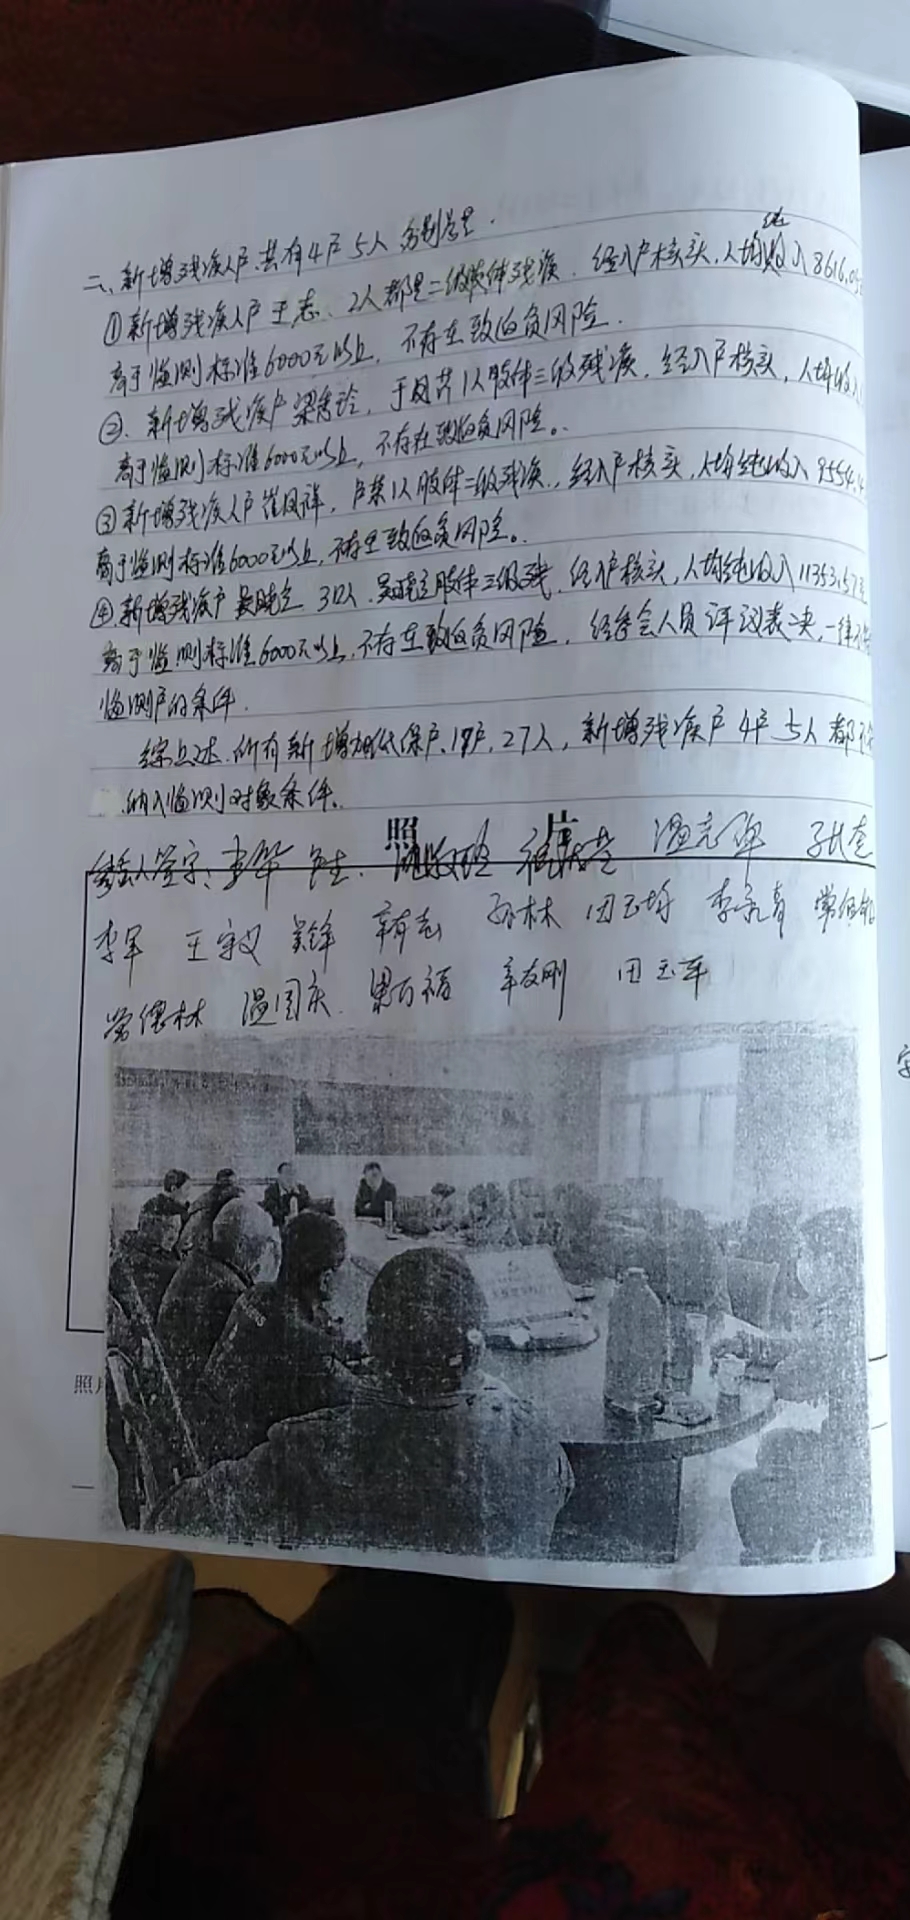 二、新增残疾人户共有4户5人 分别是
①新增残疾人户王志、2人都是二级肢体残疾、经入户核实，人均纯收入8616.05
高于监测标准6000元以上，不存在致返贫风险.
②、新增残疾户梁秀玲，于凤芹1人肢体三级残疾，经入户核实，人均收入
高于监测标准6000元以上，不存在致返贫风险。
③新增残疾人户崔凤祥，户荣1人肢体二级残疾，经入户核实，人均纯收入9554.4
高于监测标准6000元以上，不存在致返贫风险。
④新增残疾户 3口人、肢体三级残，经入户核实，人均纯收入11353.57元
高于监测标准6000元以上，不存在致返贫风险，经参会人员评议表决，一律不
监测户的条件.
综上述、所有新增加低保户、17户，27人，新增残疾户4户5人都不
纳入监测对象条件。
照 片
参会人签字：温克军
李军 王守义 孙林 田玉 李永青
常德林 温国庆 梁万福 辛友刚 田玉军
照片